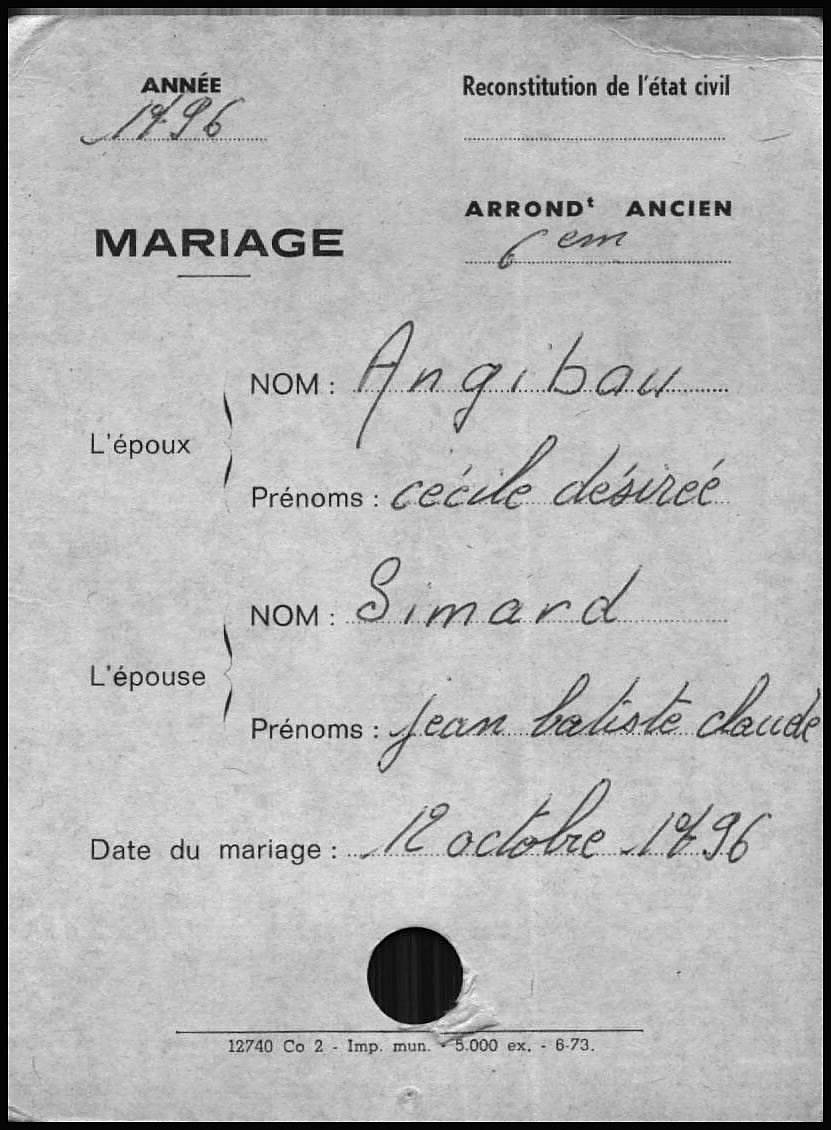 ANNÉE
1796
Reconstitution de l'état civil
ARRONDt ANCIEN
6 em
MARIAGE
L'époux
NOM : Angibau
Prénoms : cécile désireé
L'épouse
NOM : Simard
Prénoms : jean batiste claude
Date du mariage : 12 octobre 1796
12740 Co 2 - Imp. mun. - 5.000 ex. - 6-73.